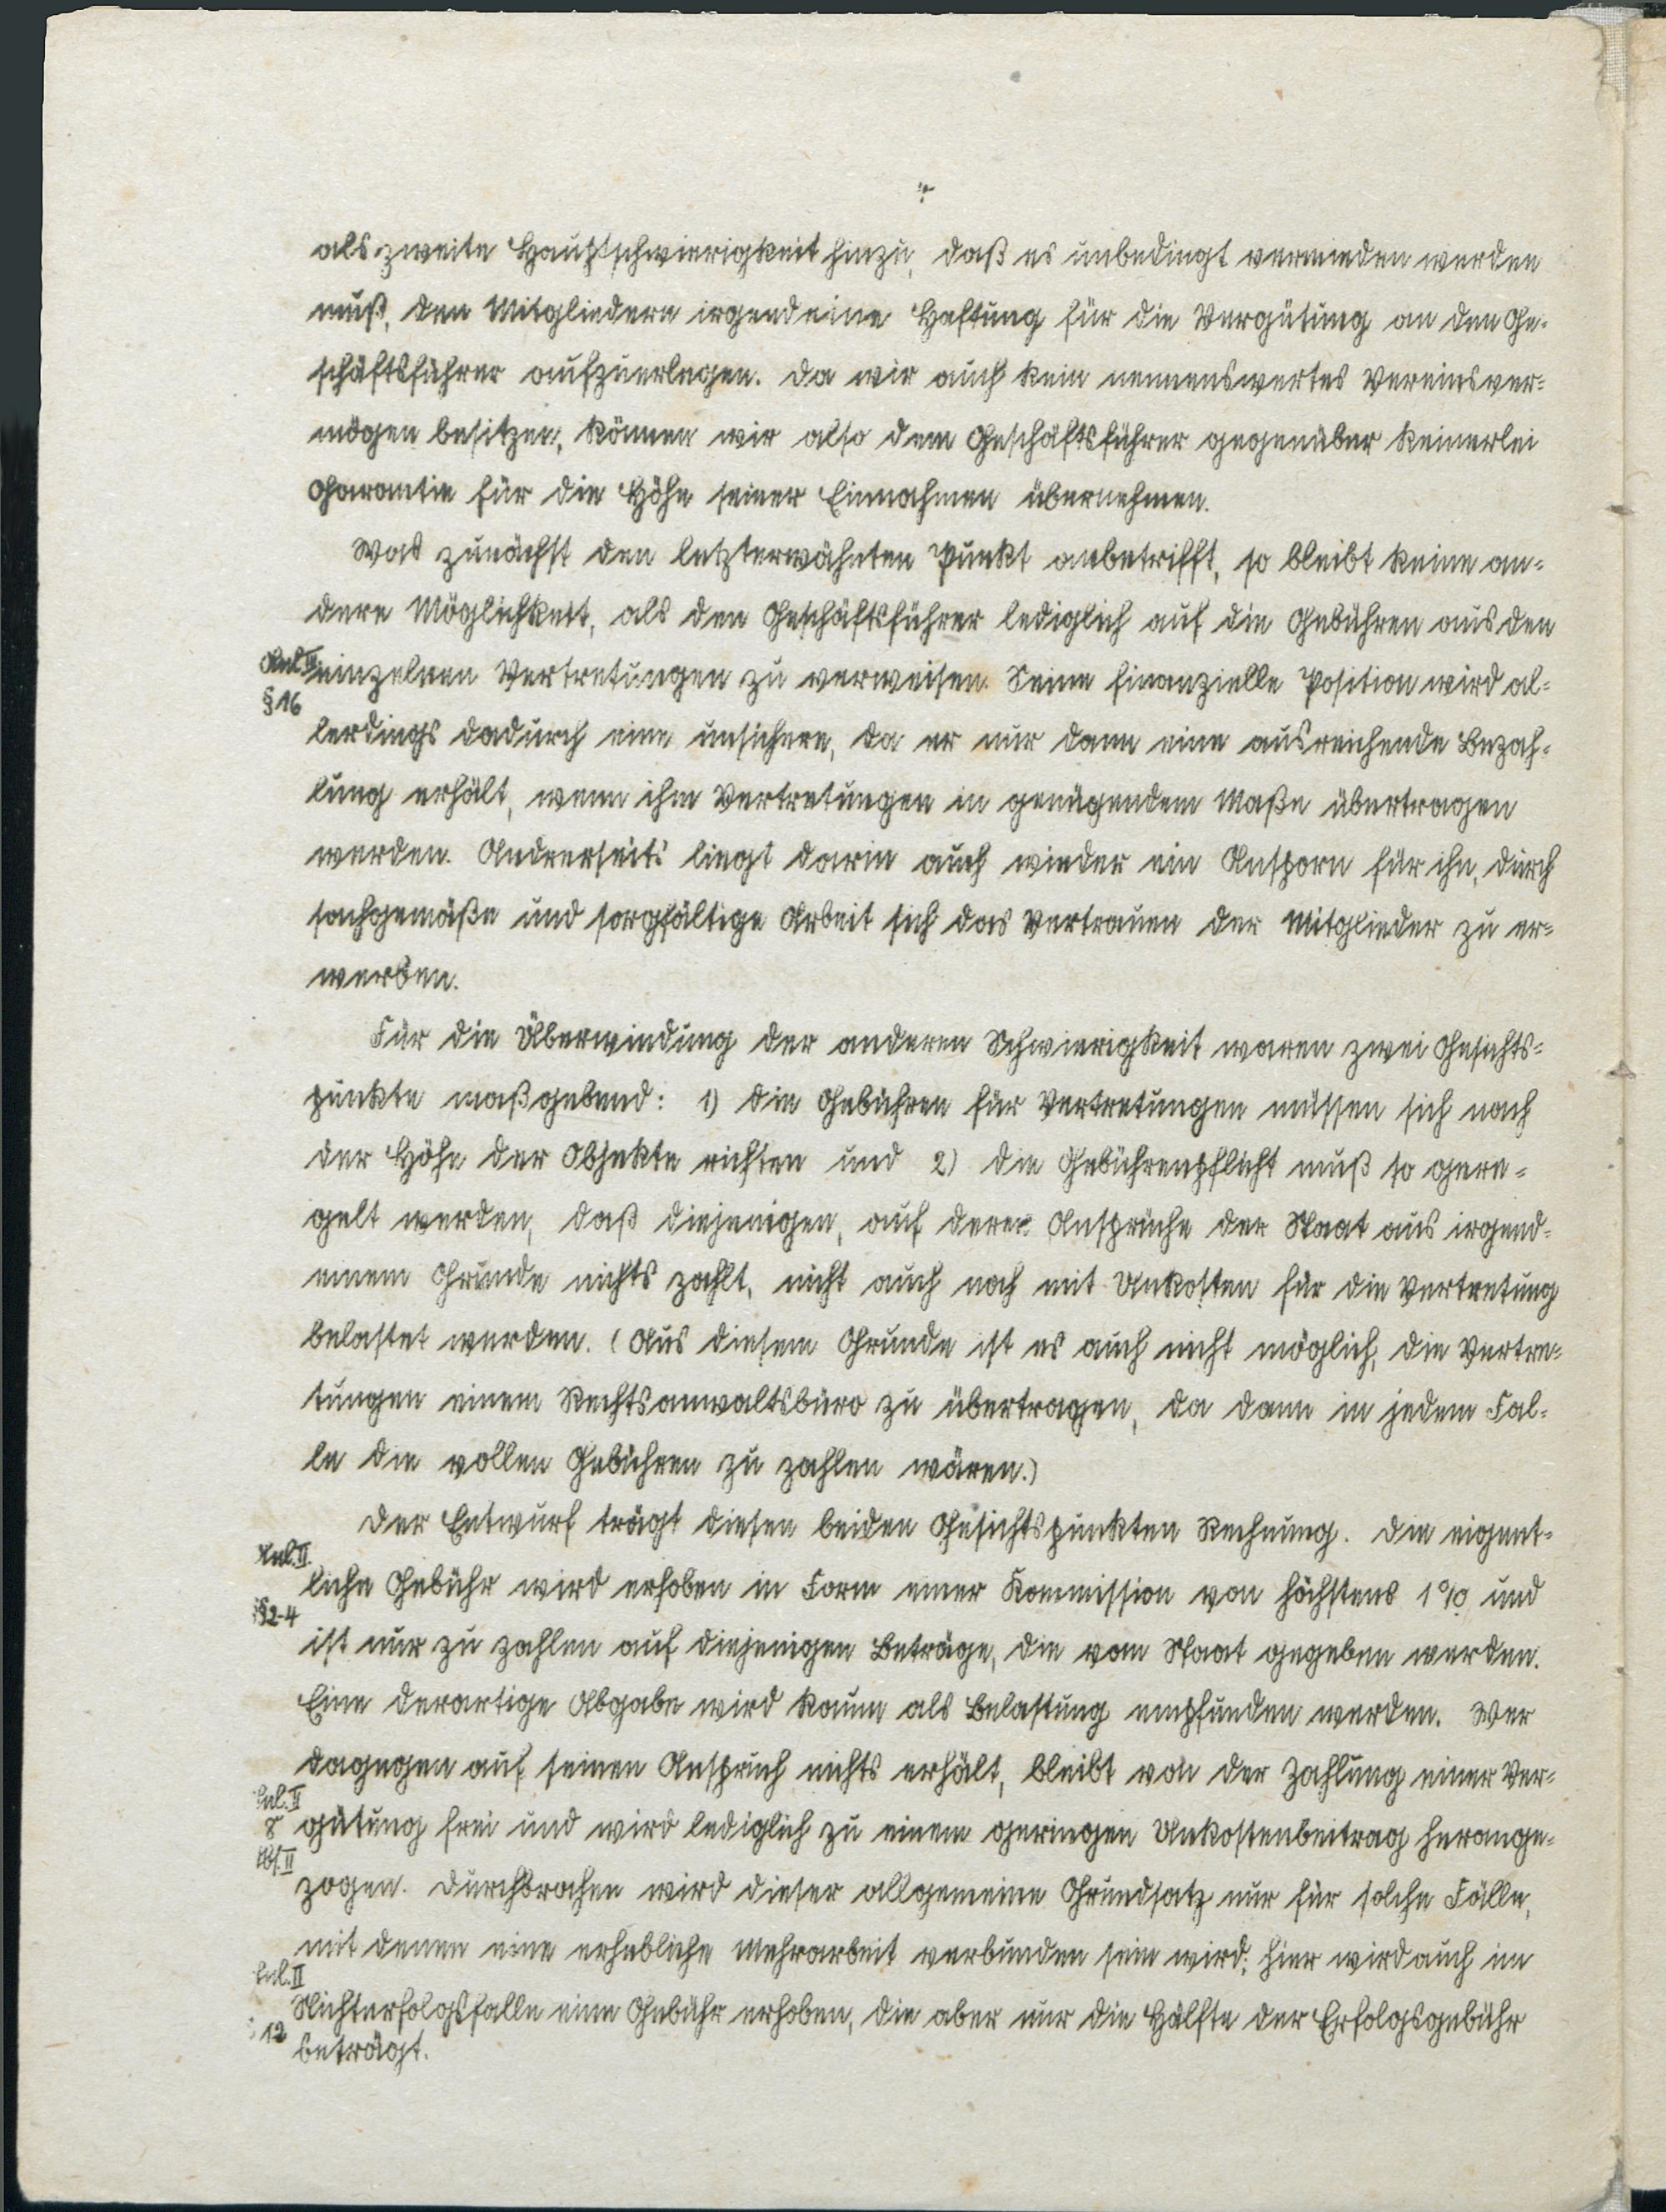 als zweite Hauptschwierigkeit hinzu, daß es unbedingt vermieden werden
muß, den Mitgliedern irgendeine Haftung für die Vergütung an den Ge-
schäftsführer aufzuerlegen. Da wir auch kein nennenswertes Vereinsver-
mögen besitzen, können wir also dem Geschäftsführer gegenüber keinerlei
Garantie für die Höhe seiner Einnahmen übernehmen.
Was zunächst den letzterwähnten Punkt anbetrifft, so bleibt keine an-
dere Möglichkeit, als den Geschäftsführer lediglich auf die Gebühren aus den
Anl. II einzelnen Vertretungen zu verweisen. Seine finanzielle Position wird al-
§ 16
lerdings dadurch eine unsichere, da er nur dann eine ausreichende Bezah-
lung erhält, wenn ihm Vertretungen in genügendem Maße übertragen
werden. Andrerseits liegt darin auch wieder ein Ansporn für ihn, durch
sachgemäße und sorgfältige Arbeit sich das Vertrauen der Mitglieder zu er-
werben.
Für die Überwindung der anderen Schwierigkeit waren zwei Gesichts-
punkte maßgebend: 1) die Gebühren für Vertretungen müssen sich nach
der Höhe der Objekte richten und 2) die Gebührenpflicht muß so gere-
gelt werden, daß diejenigen, auf deren Ansprüche der Staat aus irgend-
einem Grunde nichts zahlt, nicht auch noch mit Unkosten für die Vertretung
belastet werden. (Aus diesem Grunde ist es auch nicht möglich, die Vertre-
tungen einem Rechtsanwaltsbüro zu übertragen, da dann in jedem Fal-
le die vollen Gebühren zu zahlen wären.)
Der Entwurf trägt diesen beiden Gesichtspunkten Rechnung. Die eigent-
Anl. II.
liche Gebühr wird erhoben in Form einer Kommission von höchstens 1% und
§ 2-4
ist nur zu zahlen auf diejenigen Beträge, die vom Staat gegeben werden.
Eine derartige Abgabe wird kaum als Belastung empfunden werden. Wer
dagegen auf seinen Anspruch nichts erhält, bleibt von der Zahlung einer Ver-
Anl. II
8 gütung frei und wird lediglich zu einem geringen Unkostenbeitrag herange-
Abs. II
zogen. Durchbrochen wird dieser allgemeine Grundsatz nur für solche Fälle,
mit denen eine erhebliche Mehrarbeit verbunden sein wird; hier wird auch im
Anl. II
Nichterfolgsfalle eine Gebühr erhoben, die aber nur die Hälfte der Erfolgsgebühr
12
beträgt.